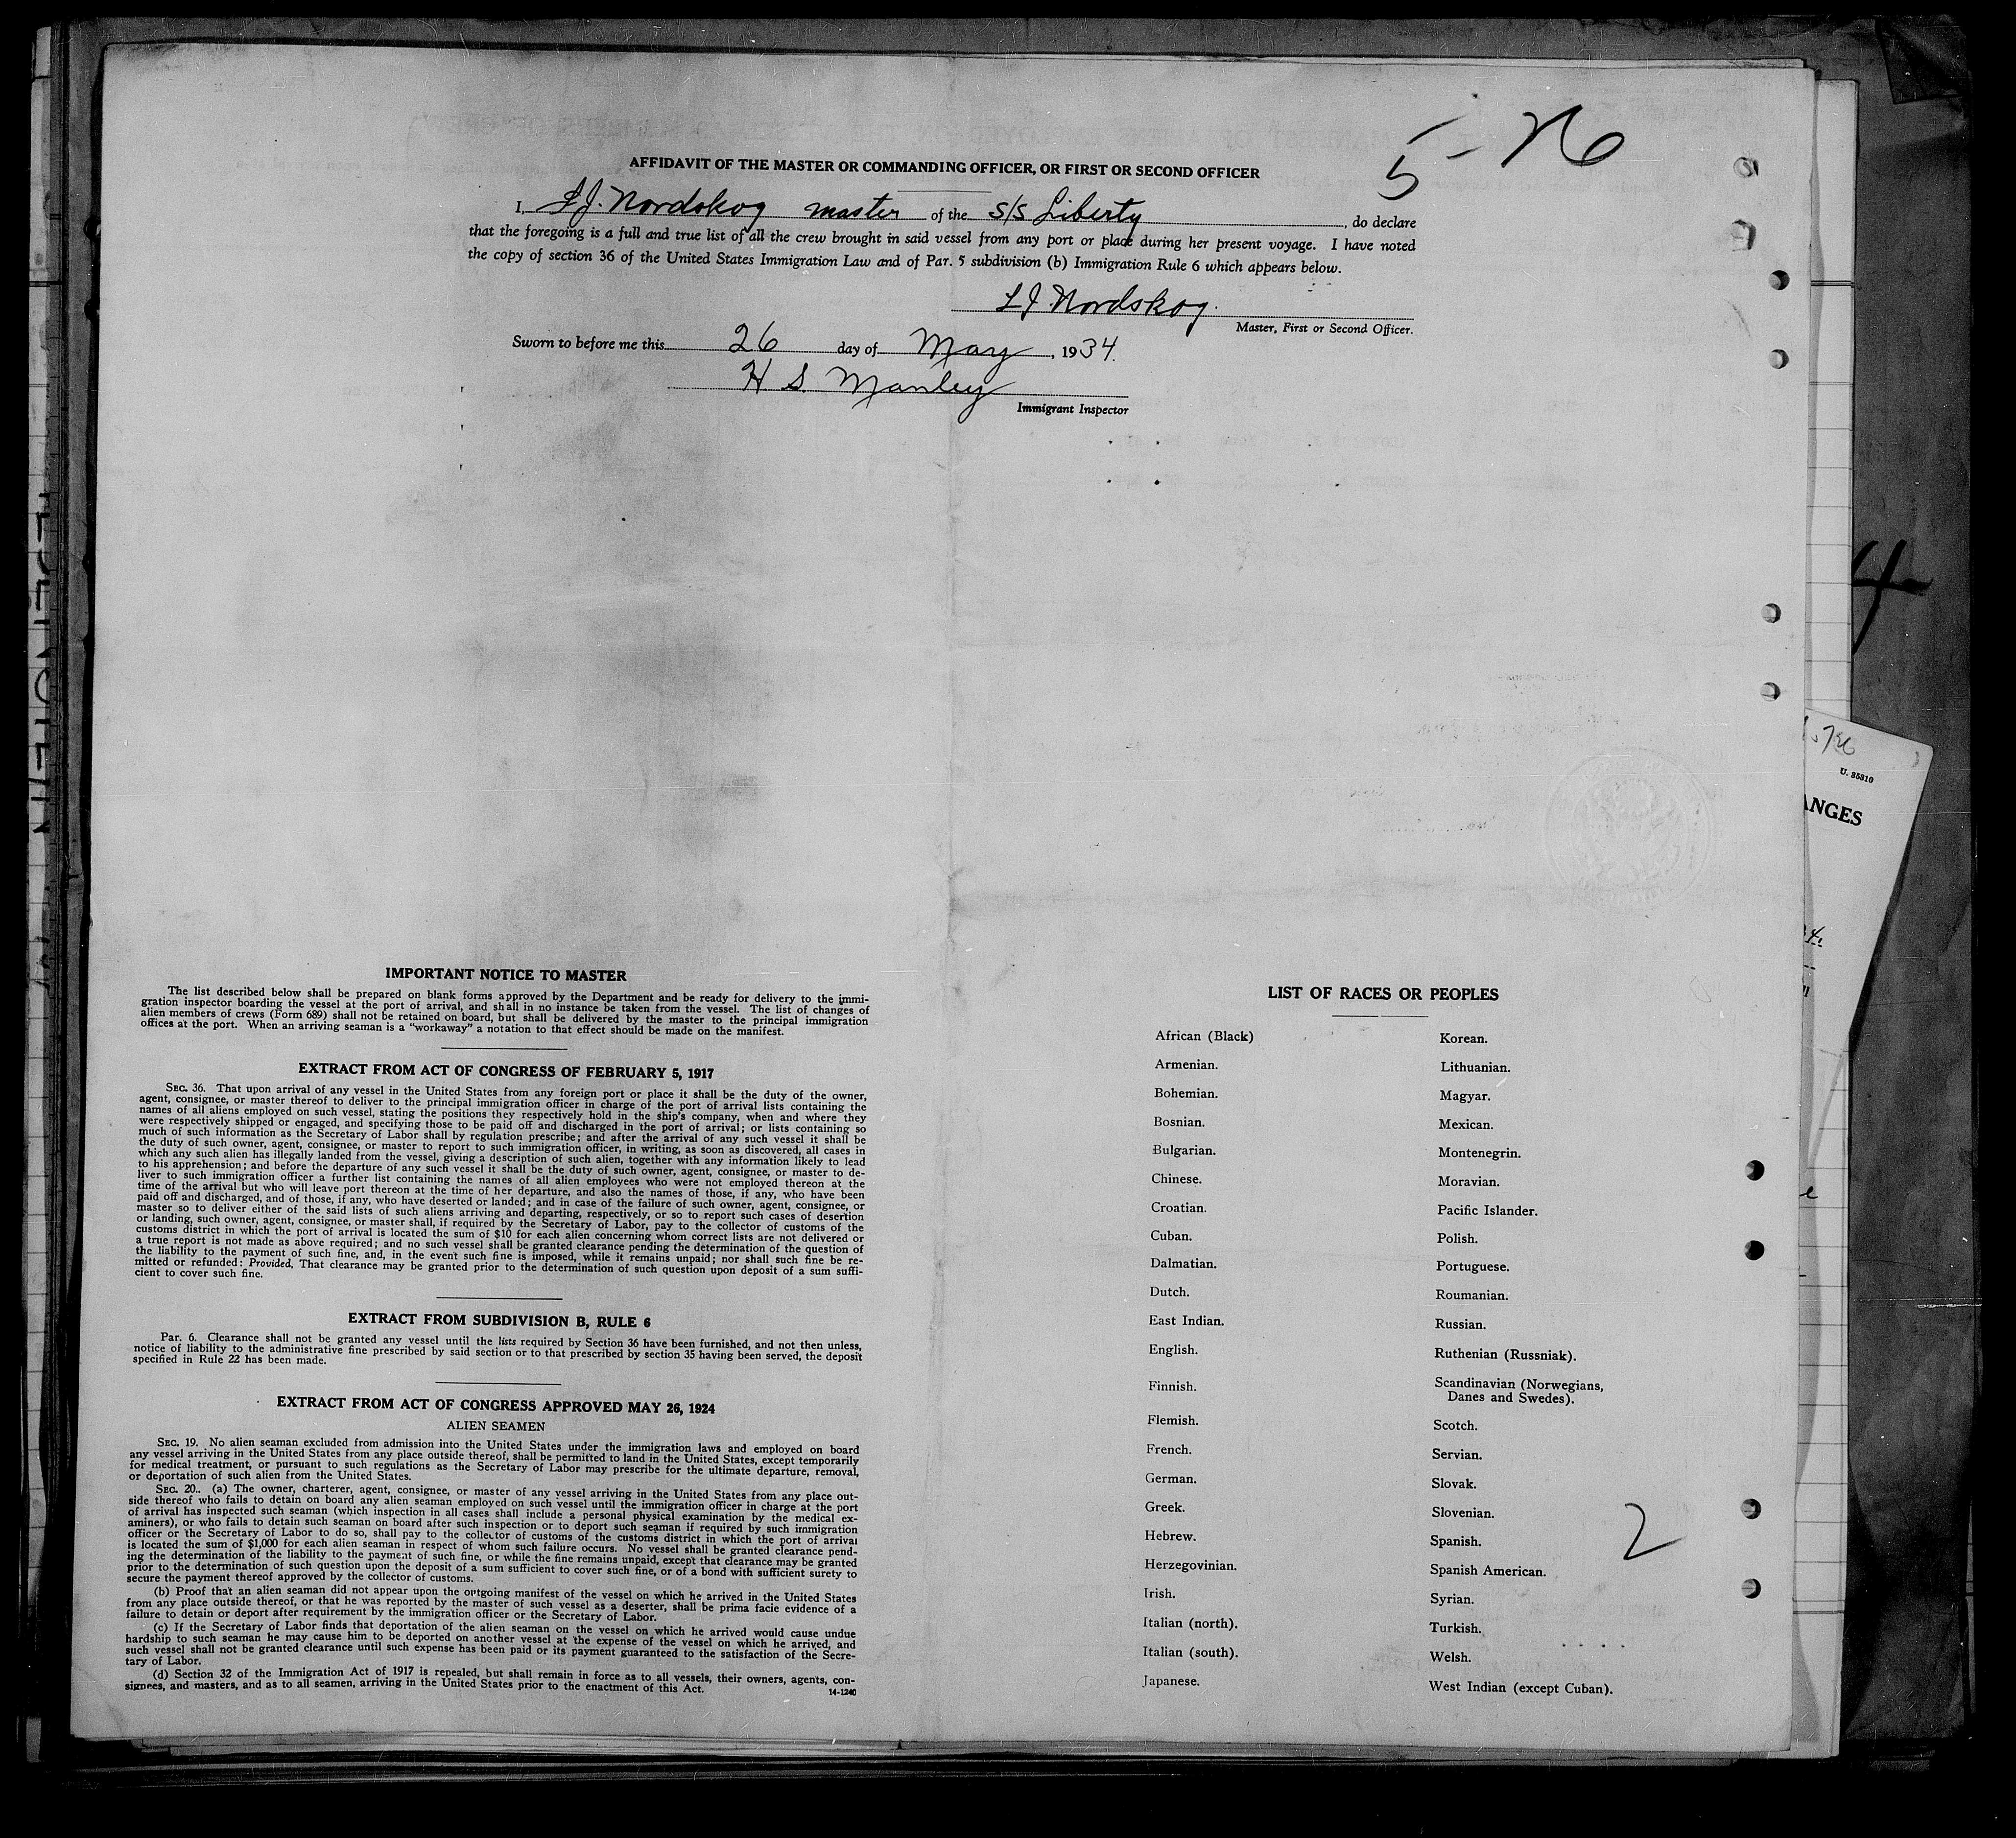 5-26
AFFIDAVIT OF THE MASTER OR COMMANDING OFFICER, OR FIRST OR SECOND OFFICER
I, L J. Nordskog master of the S/S Liberty, do declare
that the foregoing is a full and true list of all the crew brought in said vessel from any port or place during her present voyage. I have noted
the copy of section 36 of the United States Immigration Law and of Par. 5 subdivision (b) Immigration Rule 6 which appears below.
L J Nordskog.
Master, First or Second Officer.
Sworn to before me this 26 day of May, 1934.
H S. Manley
Immigrant Inspector
4
U. 85810
ANGES
IMPORTANT NOTICE TO MASTER
The list described below shall be prepared on blank forms approved by the Department and be ready for delivery to the immi-
gration inspector boarding the vessel at the port of arrival, and shall in no instance be taken from the vessel. The list of changes of
alien members of crews (Form 689) shall not be retained on board, but shall be delivered by the master to the principal immigration
offices at the port. When an arriving seaman is a "workaway" a notation to that effect should be made on the manifest.
EXTRACT FROM ACT OF CONGRESS OF FEBRUARY 5, 1917
SEC. 36. That upon arrival of any vessel in the United States from any foreign port or place it shall be the duty of the owner,
agent, consignee, or master thereof to deliver to the principal immigration officer in charge of the port of arrival lists containing the
names of all aliens employed on such vessel, stating the positions they respectively hold in the ship's company, when and where they
were respectively shipped or engaged, and specifying those to be paid off and discharged in the port of arrival; or lists containing so
much of such information as the Secretary of Labor shall by regulation prescribe; and after the arrival of any such vessel it shall be
the duty of such owner, agent, consignee, or master to report to such immigration officer, in writing, as soon as discovered, all cases in
which any such alien has illegally landed from the vessel, giving a description of such alien, together with any information likely to lead
to his apprehension; and before the departure of any such vessel it shall be the duty of such owner, agent, consignee, or master to de-
liver to such immigration officer a further list containing the names of all alien employees who were not employed thereon at the
time of the arrival but who will leave port thereon at the time of her departure, and also the names of those, if any, who have been
paid off and discharged, and of those, if any, who have deserted or landed; and in case of the failure of such owner, agent, consignee, or
master so to deliver either of the said lists of such aliens arriving and departing, respectively, or so to report such cases of desertion
or landing, such owner, agent, consignee, or master shall, if required by the Secretary of Labor, pay to the collector of customs of the
customs district in which the port of arrival is located the sum of $10 for each alien concerning whom correct lists are not delivered or
a true report is not made as above required; and no such vessel shall be granted clearance pending the determination of the question of
the liability to the payment of such fine, and, in the event such fine is imposed, while it remains unpaid; nor shall such fine be re-
mitted or refunded: Provided, That clearance may be granted prior to the determination of such question upon deposit of a sum suffi-
cient to cover such fine.
EXTRACT FROM SUBDIVISION B, RULE 6
Par. 6. Clearance shall not be granted any vessel until the lists required by Section 36 have been furnished, and not then unless,
notice of liability to the administrative fine prescribed by said section or to that prescribed by section 35 having been served, the deposit
specified in Rule 22 has been made.
EXTRACT FROM ACT OF CONGRESS APPROVED MAY 26, 1924
ALIEN SEAMEN
SEC. 19. No alien seaman excluded from admission into the United States under the immigration laws and employed on board
any vessel arriving in the United States from any place outside thereof, shall be permitted to land in the United States, except temporarily
for medical treatment, or pursuant to such regulations as the Secretary of Labor may prescribe for the ultimate departure, removal,
or deportation of such alien from the United States.
SEC. 20.. (a) The owner, charterer, agent, consignee, or master of any vessel arriving in the United States from any place out-
side thereof who fails to detain on board any alien seaman employed on such vessel until the immigration officer in charge at the port
of arrival has inspected such seaman (which inspection in all cases shall include a personal physical examination by the medical ex-
aminers), or who fails to detain such seaman on board after such inspection or to deport such seaman if required by such immigration
officer or the Secretary of Labor to do so, shall pay to the collector of customs of the customs district in which the port of arrival
is located the sum of $1,000 for each alien seaman in respect of whom such failure occurs. No vessel shall be granted clearance pend-
ing the determination of the liability to the payment of such fine, or while the fine remains unpaid, except that clearance may be granted
prior to the determination of such question upon the deposit of a sum sufficient to cover such fine, or of a bond with sufficient surety to
secure the payment thereof approved by the collector of customs.
(b) Proof that an alien seaman did not appear upon the outgoing manifest of the vessel on which he arrived in the United States
from any place outside thereof, or that he was reported by the master of such vessel as a deserter, shall be prima facie evidence of a
failure to detain or deport after requirement by the immigration officer or the Secretary of Labor.
(c) If the Secretary of Labor finds that deportation of the alien seaman on the vessel on which he arrived would cause undue
hardship to such seaman he may cause him to be deported on another vessel at the expense of the vessel on which he arrived, and
such vessel shall not be granted clearance until such expense has been paid or its payment guaranteed to the satisfaction of the Secre-
tary of Labor.
(d) Section 32 of the Immigration Act of 1917 is repealed, but shall remain in force as to all vessels, their owners, agents, con-
signees, and masters, and as to all seamen, arriving in the United States prior to the enactment of this Act.
14-1240
LIST OF RACES OR PEOPLES
African (Black)
Armenian.
Bohemian.
Bosnian.
Bulgarian.
Chinese.
Croatian.
Cuban.
Dalmatian.
Dutch.
East Indian.
English.
Finnish.
Flemish.
French.
German.
Greek.
Hebrew.
Herzegovinian.
Irish.
Italian (north).
Italian (south).
Japanese.
Korean.
Lithuanian.
Magyar.
Mexican.
Montenegrin.
Moravian.
Pacific Islander.
Polish.
Portuguese.
Roumanian.
Russian.
Ruthenian (Russniak).
Scandinavian (Norwegians,
Danes and Swedes).
Scotch.
Servian.
Slovak.
Slovenian.
Spanish.
Spanish American.
Syrian.
Turkish.
Welsh.
West Indian (except Cuban).
2